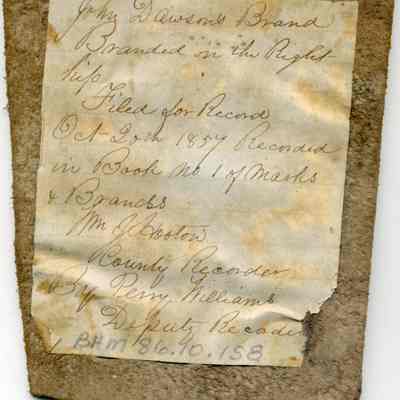 John Dawson's Brand
Branded on the Right
hip
Filed for Record
Oct 20th 1857 Recorded
in Book No 1 of Marks
& Brands
Wm
County Recorder
By Perry Williams
Deputy Recorder
BHM 86.40.158